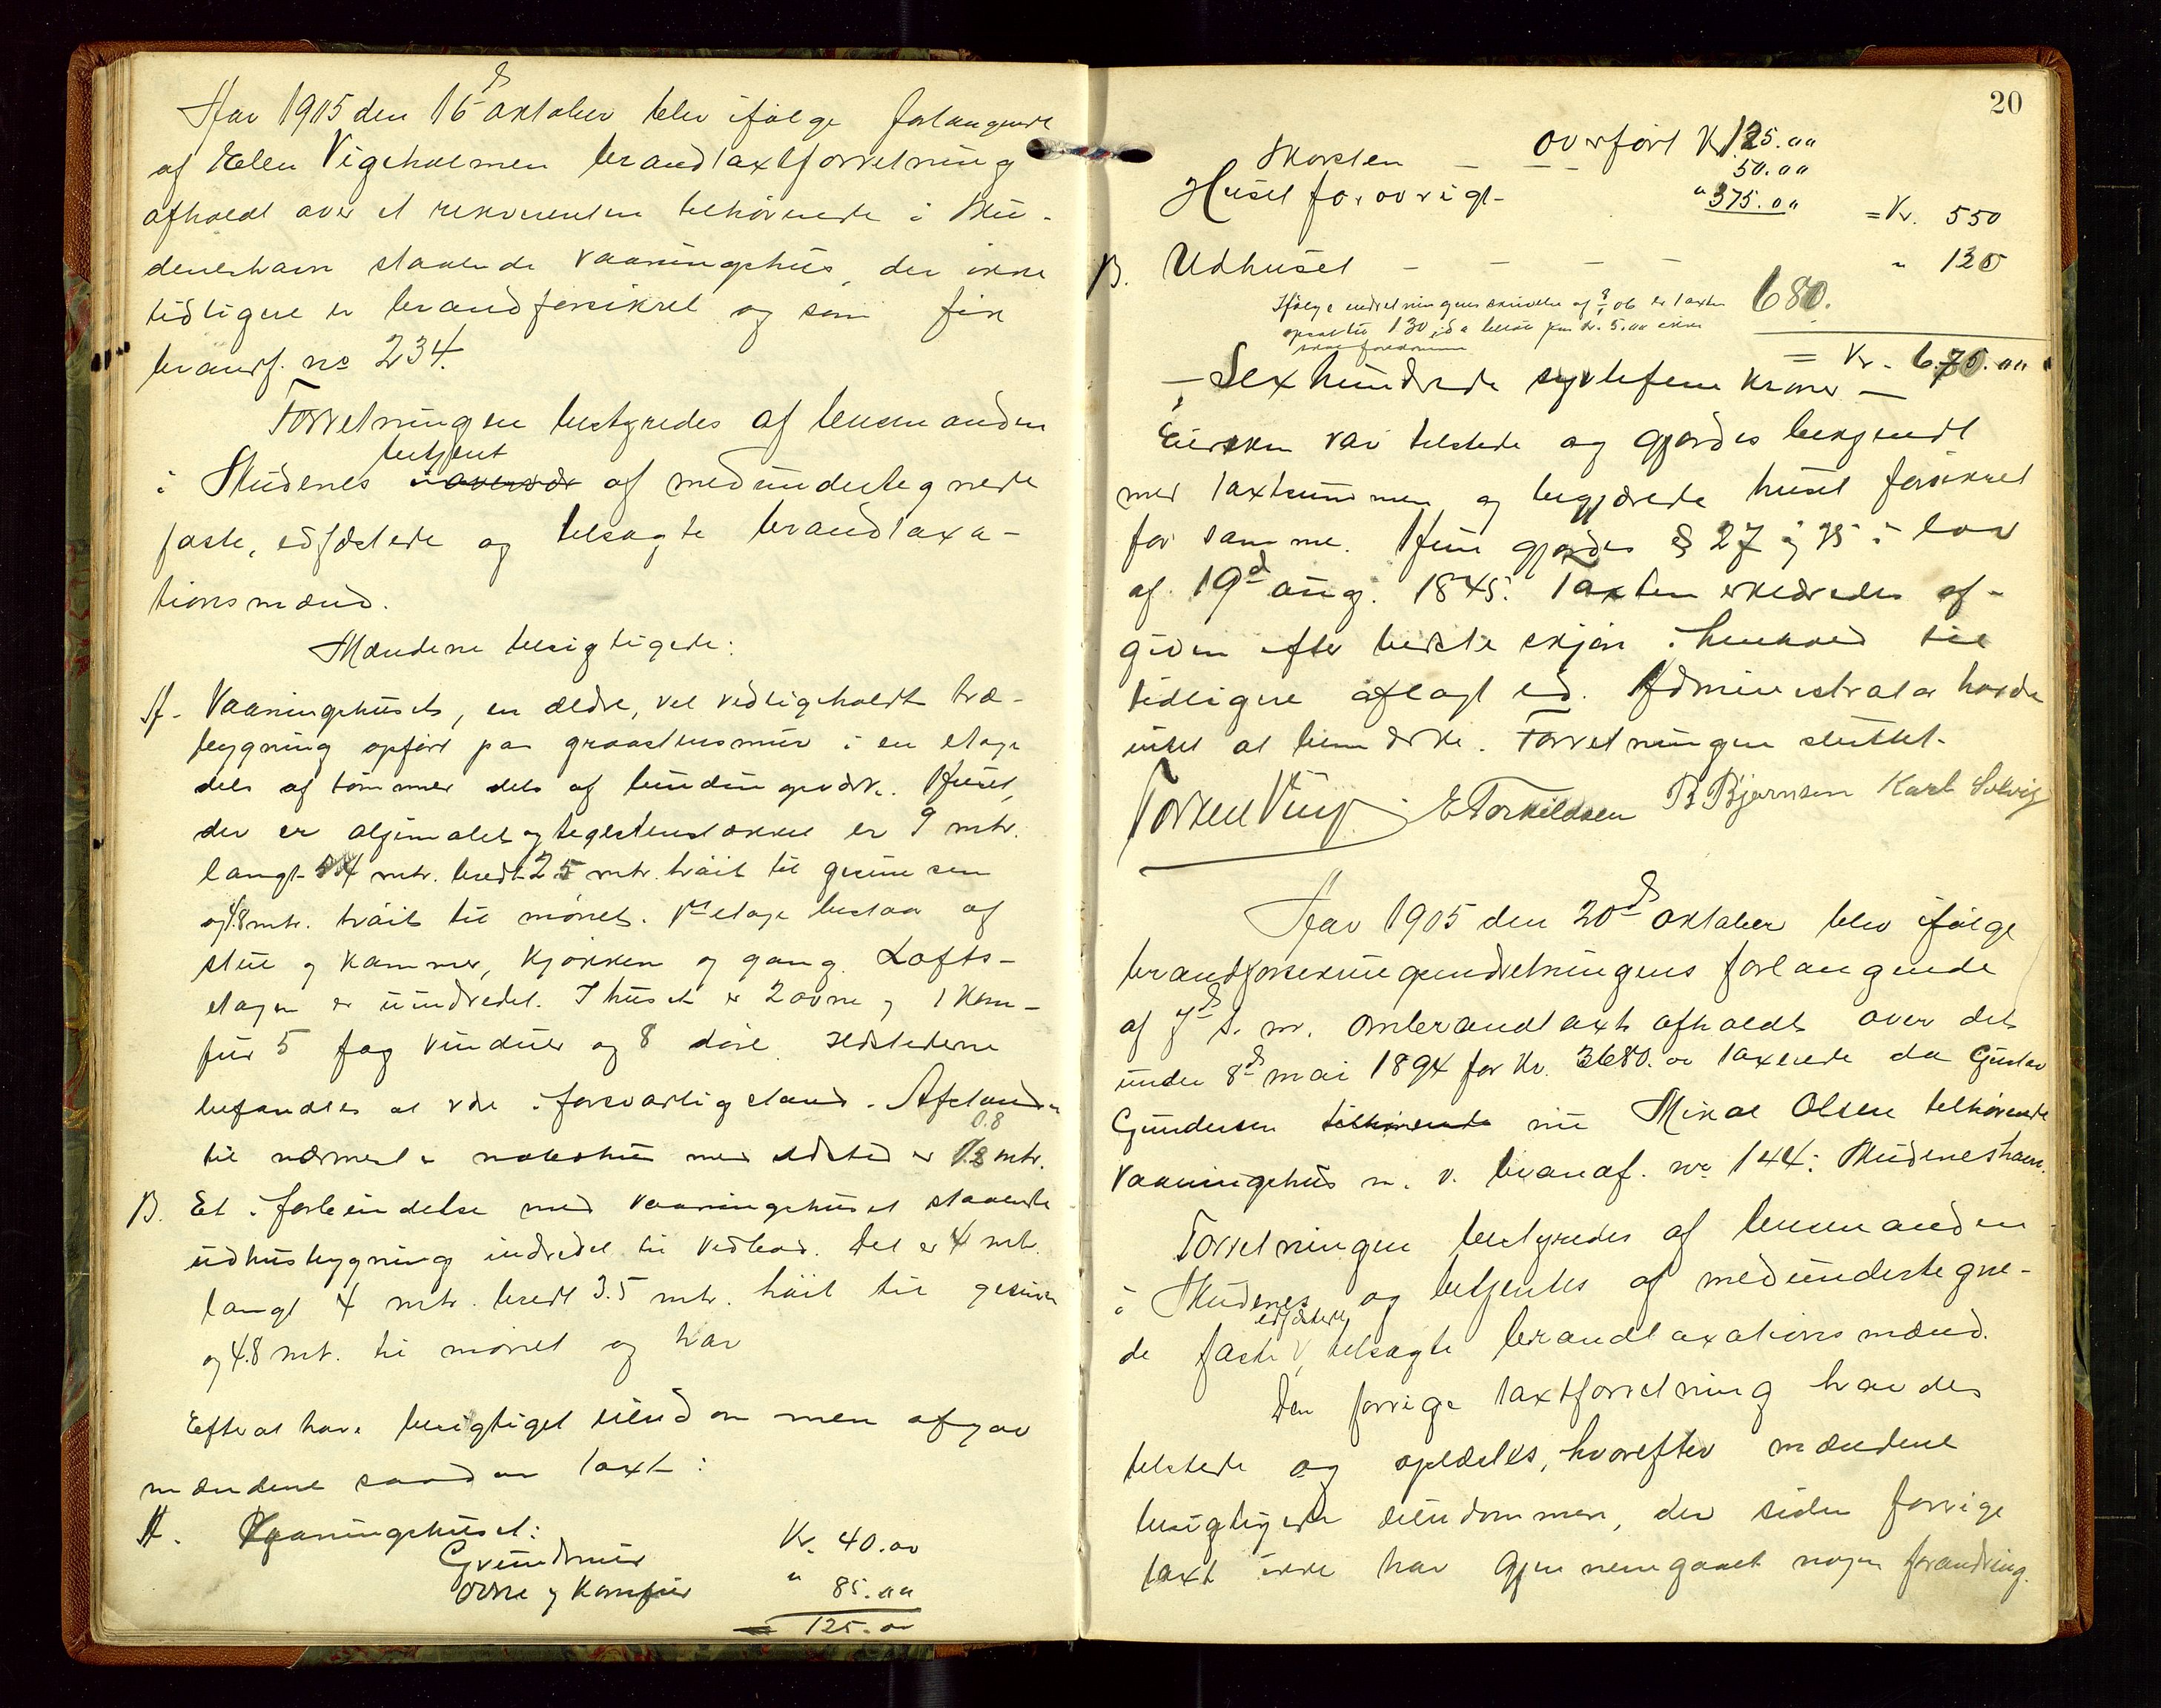 Aar 1905 den 16d oktober blev ifølge forlangende
af Elen Vigeholmen brandtaxtforretning
afholdt over et rekvirenten tilhørende i Sku-
deneshavn staaende vaaningshus, der ikke
tidligere er brandforsikret og som fik
brandf. no 234.
Forretningen bestyredes af lensmanden
betjent
i Skudenes af medundertegnede
faste, edfæstede og tilsagte brandtaxa-
tionsmænd.
Mændene besigtigede:
A. Vaaningshuset, en ældre, vel vedligeholdt træ-
bygning opført paa graastensmur i en etage
dels af tømmer dels af bindingsværk. Huset,
der er oljemalet og teglstenstækket er 9 mtr.
langt 4 mtr. bredt 2.5 mtr. høit til gesimsen
og 4.8 mtr. høit til mønet. 1ste etage bestaar af
stue og kammer, kjøkken og gang. Lofts-
etagen er uindredet. I huset er 2 ovne og 1 kom-
fur 5 fag vinduer og 8 døre. Ildstederne
befandtes at være i forsvarlig stand. Afstanden
0.8
til nærmeste nabohus med ildsted er mtr.
B. Et i forbindelse med vaaningshuset staaende
udhusbygning indredet til vedbod. Det er 4 mtr.
langt 4 mtr. bredt 3.5 mtr. høit til gesims
og 4.8 mt. til mønet og har
Efter at have besigtiget eiendommen afgav
mændene saadan taxt:
A. Vaaningshuset:
Grundmur Kr. 40.00
Ovne og Komfur " 85.00
= 125.00
20
overført Kr 125.00
Skorsten — — 50.00
Huset forøvrigt - " 375.00 = Kr. 550
B. Udhuset - - - - " 130
Ifølge indretningens skrivelse af 06 er taxten 680.
opsat til 130, da beløb paa kr. 5.00 ikke
skal forekomme
= Kr. 680.00
— Sex hundrede sytifem kroner —
Eiersken var tilstede og gjordes bekjendt
med taxtsummen og begjærede huset forsikret
for samme. Hun gjordes § 27 og 35 i lov
af 19d aug. 1845. Taxten erklæredes af-
given efter bedste skjøn i henhold til
tidligere aflagt ed. Administrator havde
intet at bemærke. Forretningen sluttet.
E Torkildsen B Bjørnsen Karl Solvig
Aar 1905 den 20d oktober blev ifølge
brandforsikringsindretningens forlangende
af 7d s. m. ombrandtaxt afholdt over det
under 8d mai 1894 for kr. 3680.00 taxerede da Gustav
Gundersen tilhørende nu Mikal Olsen tilhørende
vaaningshus m. v. brandf. no 144 i Skudeneshavn.
Forretningen bestyredes af lensmanden
i Skudenes og betjentes af medundertegne-
edfæstede
de faste V, tilsagte brandtaxationsmænd.
Den forrige taxtforretning havdes
tilstede og oplæstes, hvorefter mændene
besigtigede eiendommen, der siden forrige
taxt ikke har gjennemgaaet nogen forandring.